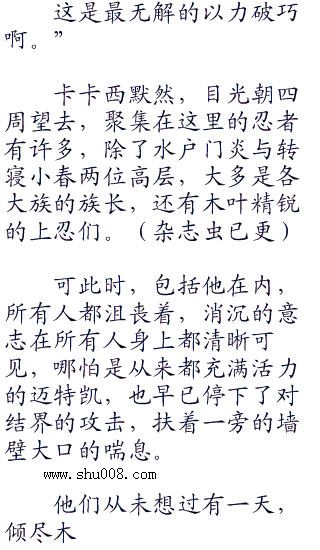 这是最无解的以力破巧
啊。”
卡卡西默然，目光朝四
周望去，聚集在这里的忍者
有许多，除了水户门炎与转
寝小春两位高层，大多是各
大族的族长，还有木叶精锐
的上忍们。（杂志虫已更）
可此时，包括他在内，
所有人都沮丧着，消沉的意
志在所有人身上都清晰可
见，哪怕是从来都充满活力
的迈特凯，也早已停下了对
结界的攻击，扶着一旁的墙
壁大口的喘息。
www.shu008.com
他们从未想过有一天，
倾尽木